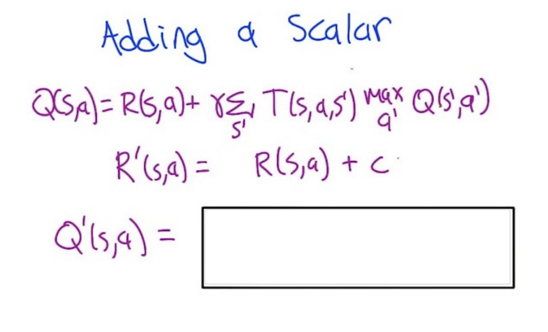 Adding a Scalar
Q(s,a) = R(s,a) + γ Σ T(s,a,s') max Q(s',a')
s' a'
R'(s,a) = R(s,a) + c
Q'(s,a) =